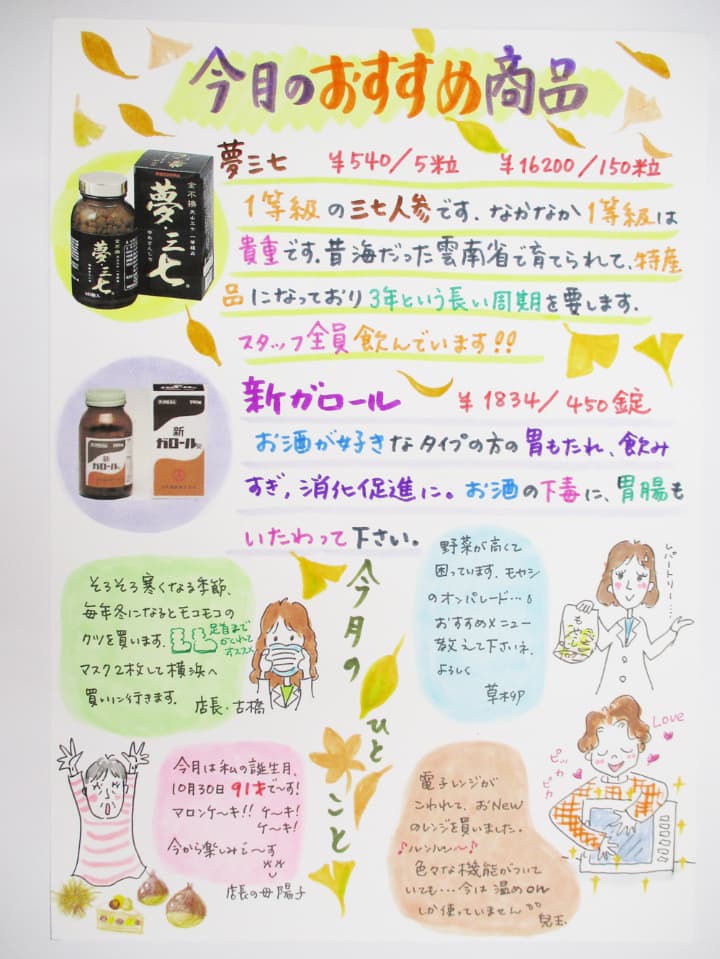 今月のおすすめ商品
夢三七 ¥540/5粒 ¥16200/150粒
1等級の三七人参です.なかなか1等級は
貴重です.昔海だった雲南省で育てられて、特産
品になっており3年という長い周期を要します.
スタッフ全員飲んでいます!!
夢・三七
金不換
夢・三七
新ガロール ¥1834/450錠
お酒が好きなタイプの方の胃もたれ、飲み
すぎ,消化促進に。お酒の下毒に、胃腸も
いたわって下さい。
新
ガロール
新
ガロール
今月のひとこと
そろそろ寒くなる季節、
毎年冬になるとモコモコの
クツを買います.
足首まで
かくれて
オススメ
マスク2枚して横浜へ
買いに行きます.
店長・古橋
野菜が高くて
困っています.モヤシ
のオンパレード…
おすすめメニュー
教えて下さいネ.
よろしく
草柳
レパートリー…
もやし
今月は私の誕生月、
10月30日 91才で〜す!
マロンケ〜キ!! ケ〜キ!
ケ〜キ!
今から楽しみで〜す
店長の母 陽子
電子レンジが
こわれて、おNew
のレンジを買いました.
♪ルンルン〜♪
色々な機能がついて
いても…今は温めon
しか使っていません
兒玉.
Love
ピッカ
ピカ